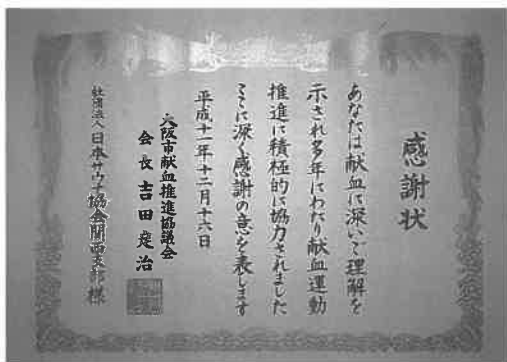 感謝状
あなたは献血に深いご理解を
示され多年にわたり献血運動
推進に積極的に協力されました
ここに深く感謝の意を表します
平成十一年十二月十六日
大阪市献血推進協議会
会長 吉田 治
社団法人日本サウナ協会関西支部 様